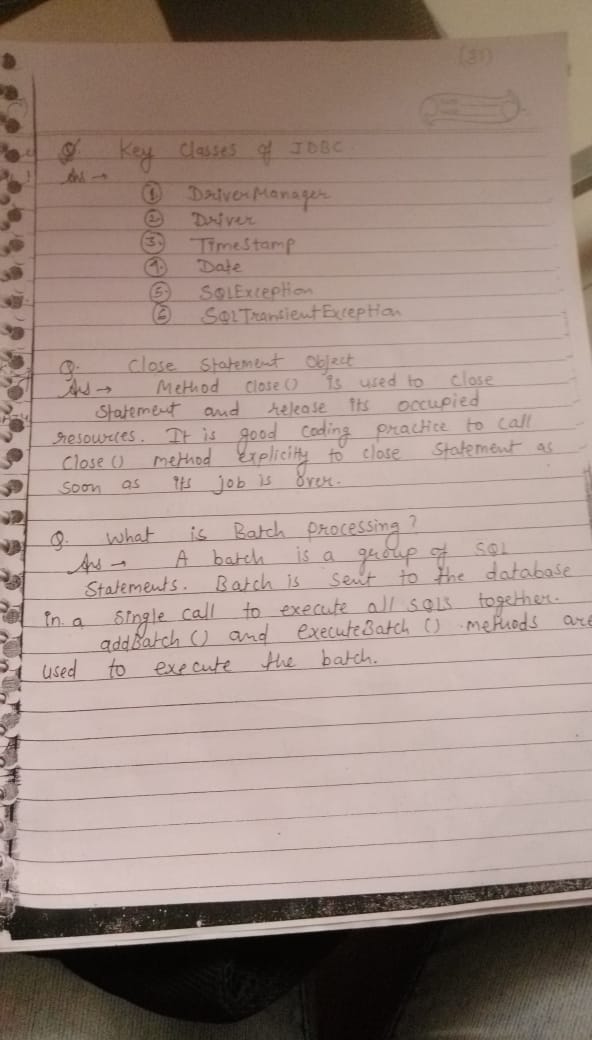 (31)
Q. Key Classes of JDBC.
Ans →
① DriverManager
② Driver
③ TimeStamp
④ Date
⑤ SQLException
⑥ SQLTransientException
Q. Close Statement Object
Ans → Method close() is used to close
Statement and release its occupied
resources. It is good coding practice to call
Close() method explicitly to close Statement as
soon as its job is over.
Q. What is Batch processing?
Ans → A batch is a group of SQL
Statements. Batch is sent to the database
in a single call to execute all SQLs together.
addBatch() and executeBatch() methods are
used to execute the batch.